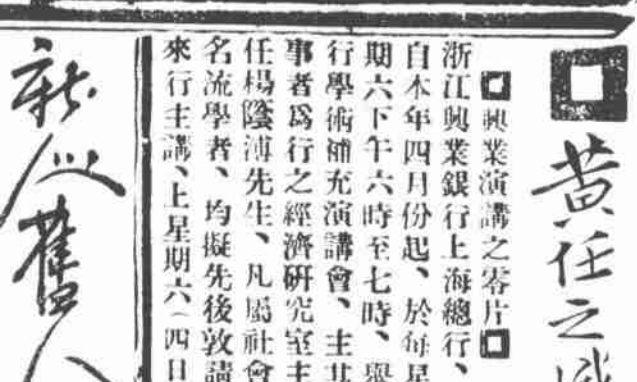 黄任之
興業演講之零片
浙江興業銀行上海總行、
自本年四月份起、於每星
期六下午六時至七時、舉
行學術補充演講會、主其
事者爲行之經濟研究室主
任楊蔭溥先生、凡屬社會
名流學者、均擬先後敦請
來行主講、上星期六（四日
新人舊人